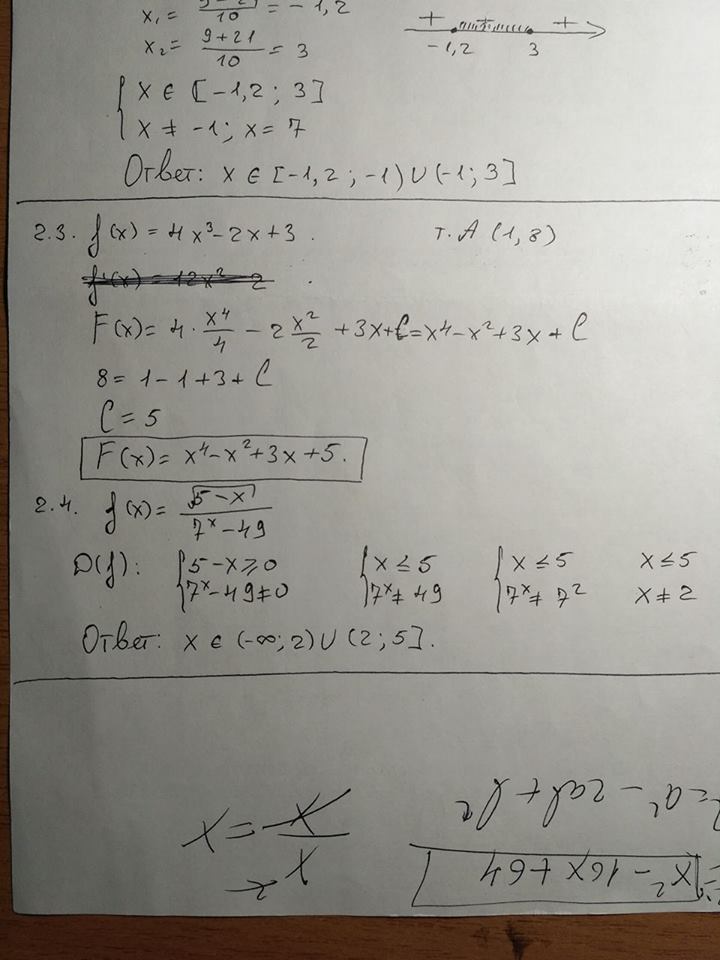 x₁ = 9-21/10 = -1,2
x₂ = 9+21/10 = 3
+ + -1,2 3
{ x ∈ [-1,2; 3]
x ≠ -1; x = 7
Ответ: x ∈ [-1,2; -1) ∪ (-1; 3]
2.3. f(x) = 4x³ - 2x + 3. т. A (1, 8)
f'(x) = 12x² - 2
F(x) = 4 · x⁴/4 - 2 x²/2 + 3x + C = x⁴ - x² + 3x + C
8 = 1 - 1 + 3 + C
C = 5
F(x) = x⁴ - x² + 3x + 5.
2.4. f(x) = √(5-x) / 7ˣ - 49
D(f): { 5 - x ⩾ 0 { x ≤ 5 { x ≤ 5 x ≤ 5
7ˣ - 49 ≠ 0 7ˣ ≠ 49 7ˣ ≠ 7² x ≠ 2
Ответ: x ∈ (-∞; 2) ∪ (2; 5].
x² - 16x + 64
= a² - 2ab + b²